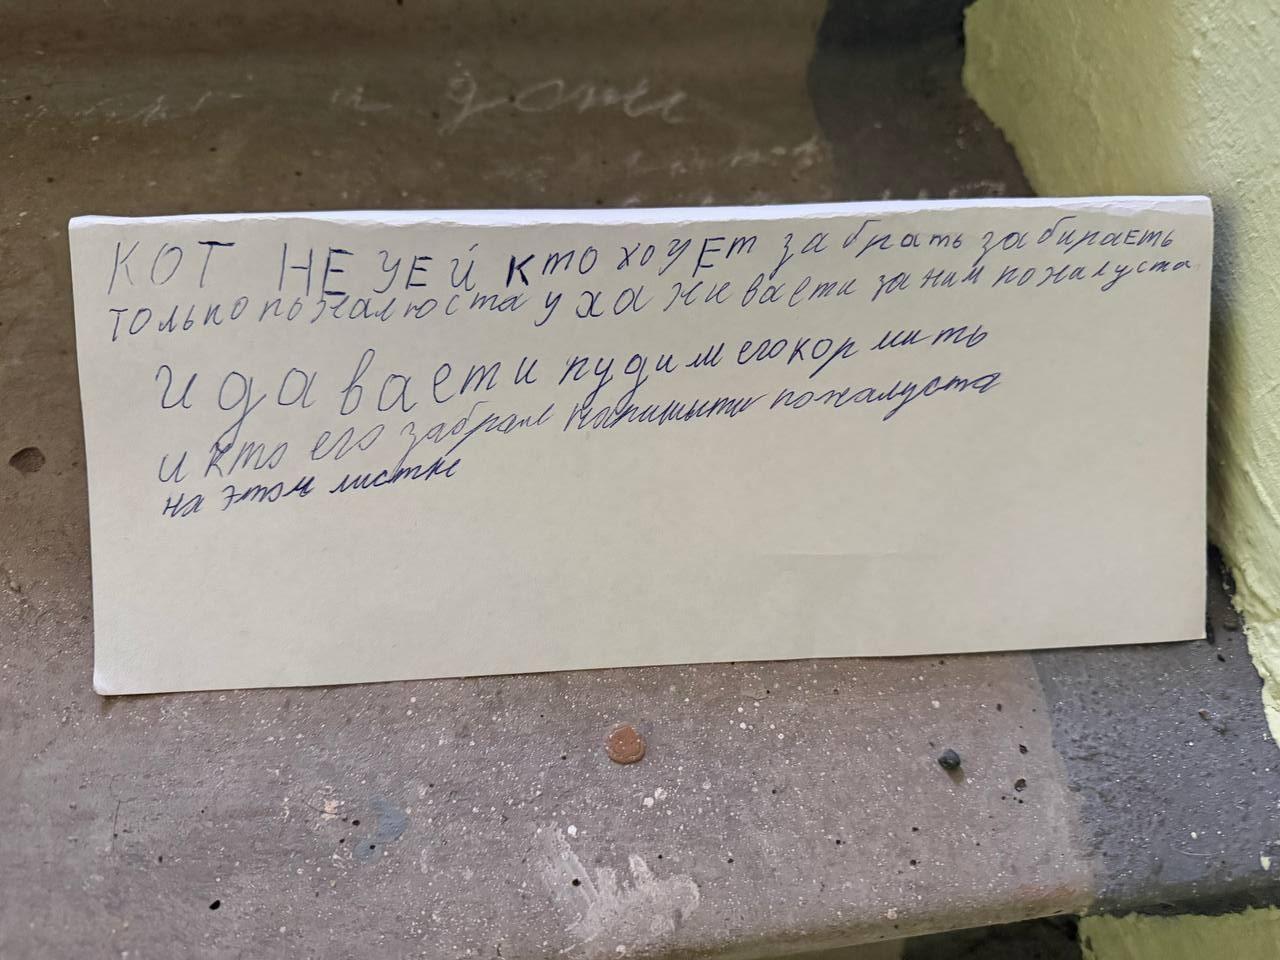 и дети
КОТ НЕ УЕЙ кто хоуЕт забрать забираеть
только пожалюста ухаживаети за ним пожалуста
и даваети пудим его кормить
и кто его забрал напишыти пожалуста
на этом листке